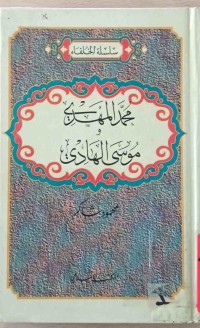 سلسلة الخلفاء
محمد المهدي
و
موسى الهادي
محمود شاكر
المكتب الإسلامي